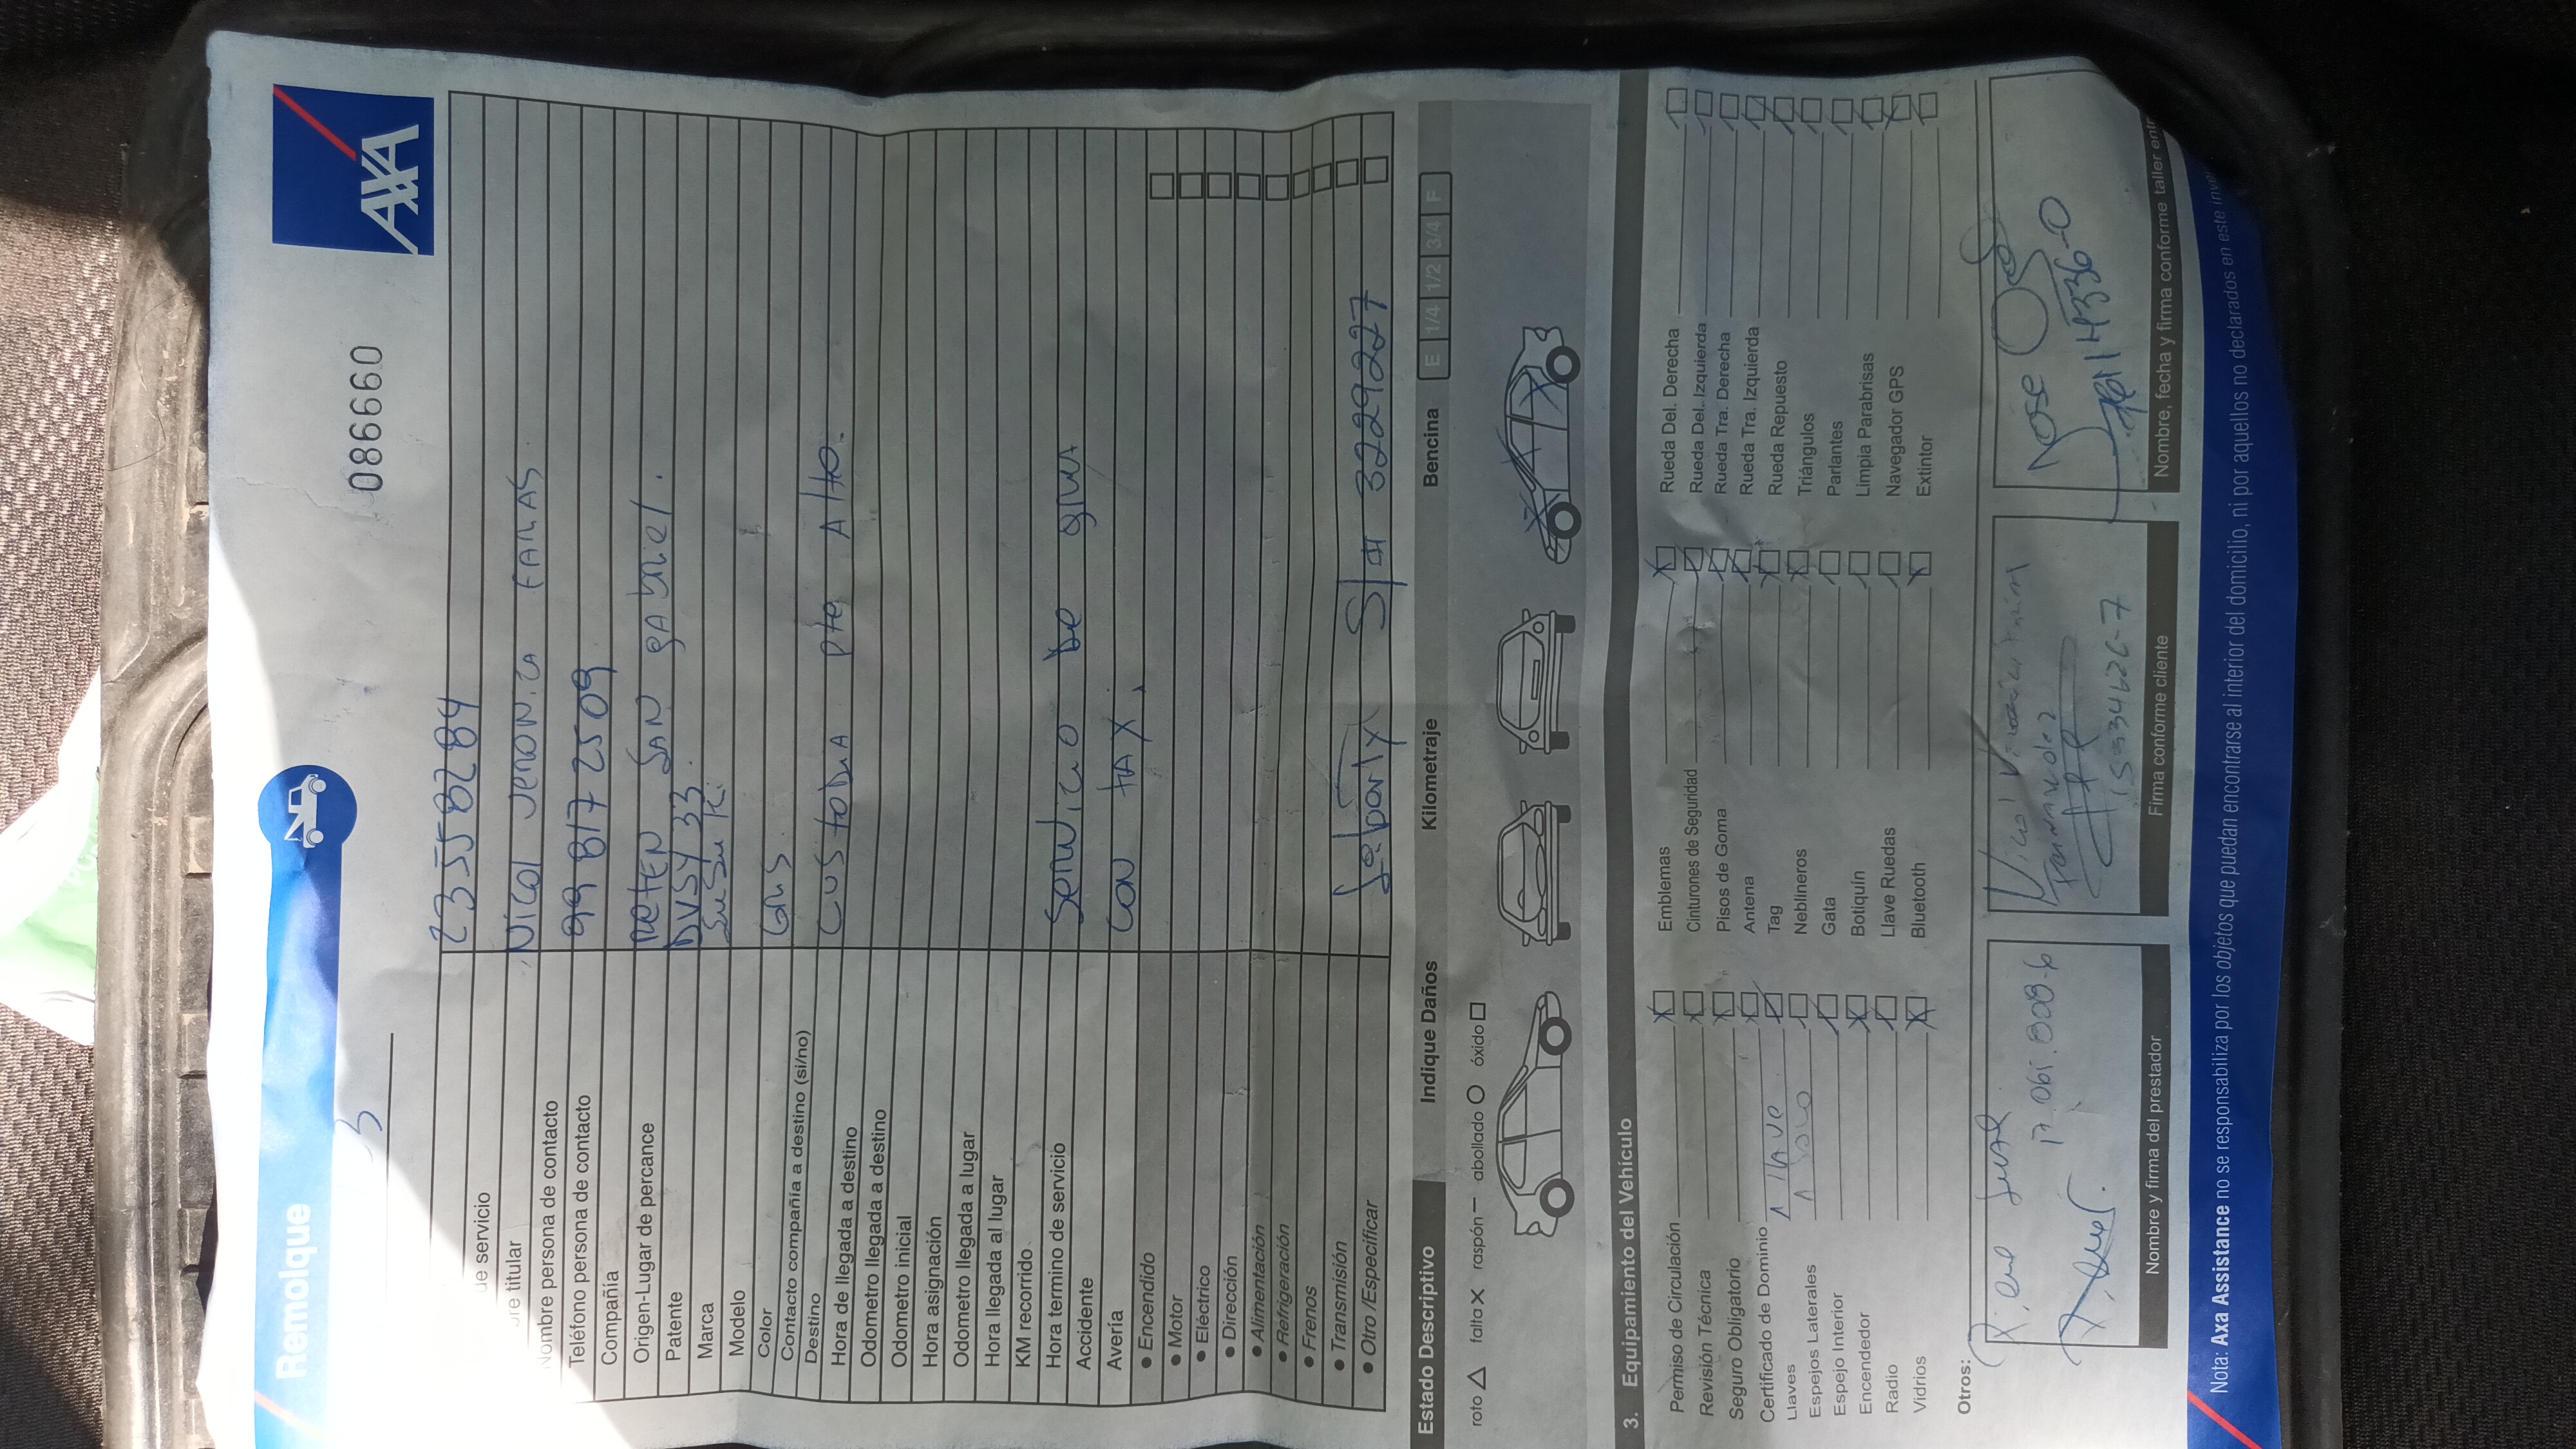 Remolque
086660
AXA
ue servicio 23558284
bre titular
Nombre persona de contacto
Teléfono persona de contacto 99 817 2509
Compañía
Origen-Lugar de percance SAN gabriel.
Patente DVSY 33
Marca Susuki
Modelo
Color Gris
Contacto compañía a destino (si/no)
Destino CUStodia pte Alto.
Hora de llegada a destino
Odometro llegada a destino
Odometro inicial
Hora asignación
Odometro llegada a lugar
Hora llegada al lugar
KM recorrido
Hora termino de servicio Servicio de grua
Accidente
Avería con tAX.
• Encendido
• Motor
• Eléctrico
• Dirección
• Alimentación
• Refrigeración
• Frenos
• Transmisión
• Otro /Especificar 32299227
Estado Descriptivo Indique Daños Kilometraje Bencina E 1/4 1/2 3/4 F
roto falta raspón abollado óxido
3. Equipamiento del Vehículo
Permiso de Circulación Emblemas Rueda Del. Derecha
Revisión Técnica Cinturones de Seguridad Rueda Del. Izquierda
Seguro Obligatorio Pisos de Goma Rueda Tra. Derecha
Certificado de Dominio Antena Rueda Tra. Izquierda
Llaves 1 llave Tag Rueda Repuesto
Espejos Laterales Neblineros Triángulos
Espejo Interior Gata Parlantes
Encendedor Botiquín Limpia Parabrisas
Radio Llave Ruedas Navegador GPS
Vidrios Bluetooth Extintor
Otros:
17.061.808-6
Nicol
Jose
Nombre y firma del prestador
Firma conforme cliente
Nombre, fecha y firma conforme taller entr
Nota: Axa Assistance no se responsabiliza por los objetos que puedan encontrarse al interior del domicilio, ni por aquellos no declarados en este inve